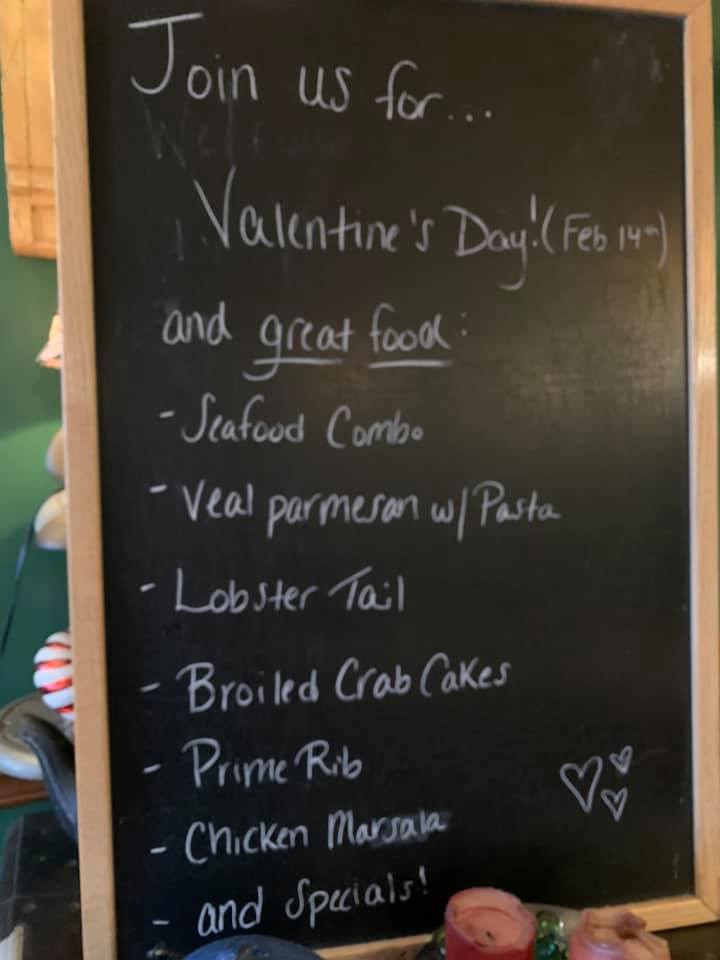 Join us for...
Valentine's Day! (Feb 14th)
and great food:
- Seafood Combo
- Veal parmesan w/ Pasta
- Lobster Tail
- Broiled Crab Cakes
- Prime Rib
- Chicken Marsala
- and Specials!